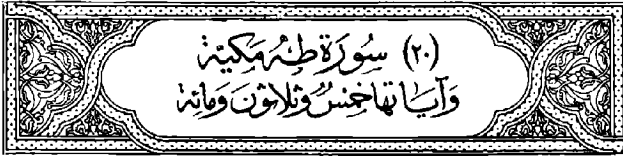 (٢٠) سُورَة طٰهٰ مَكيّة
وَآيَاتهَا خمسٌ وَثلَاثونَ وَمائة